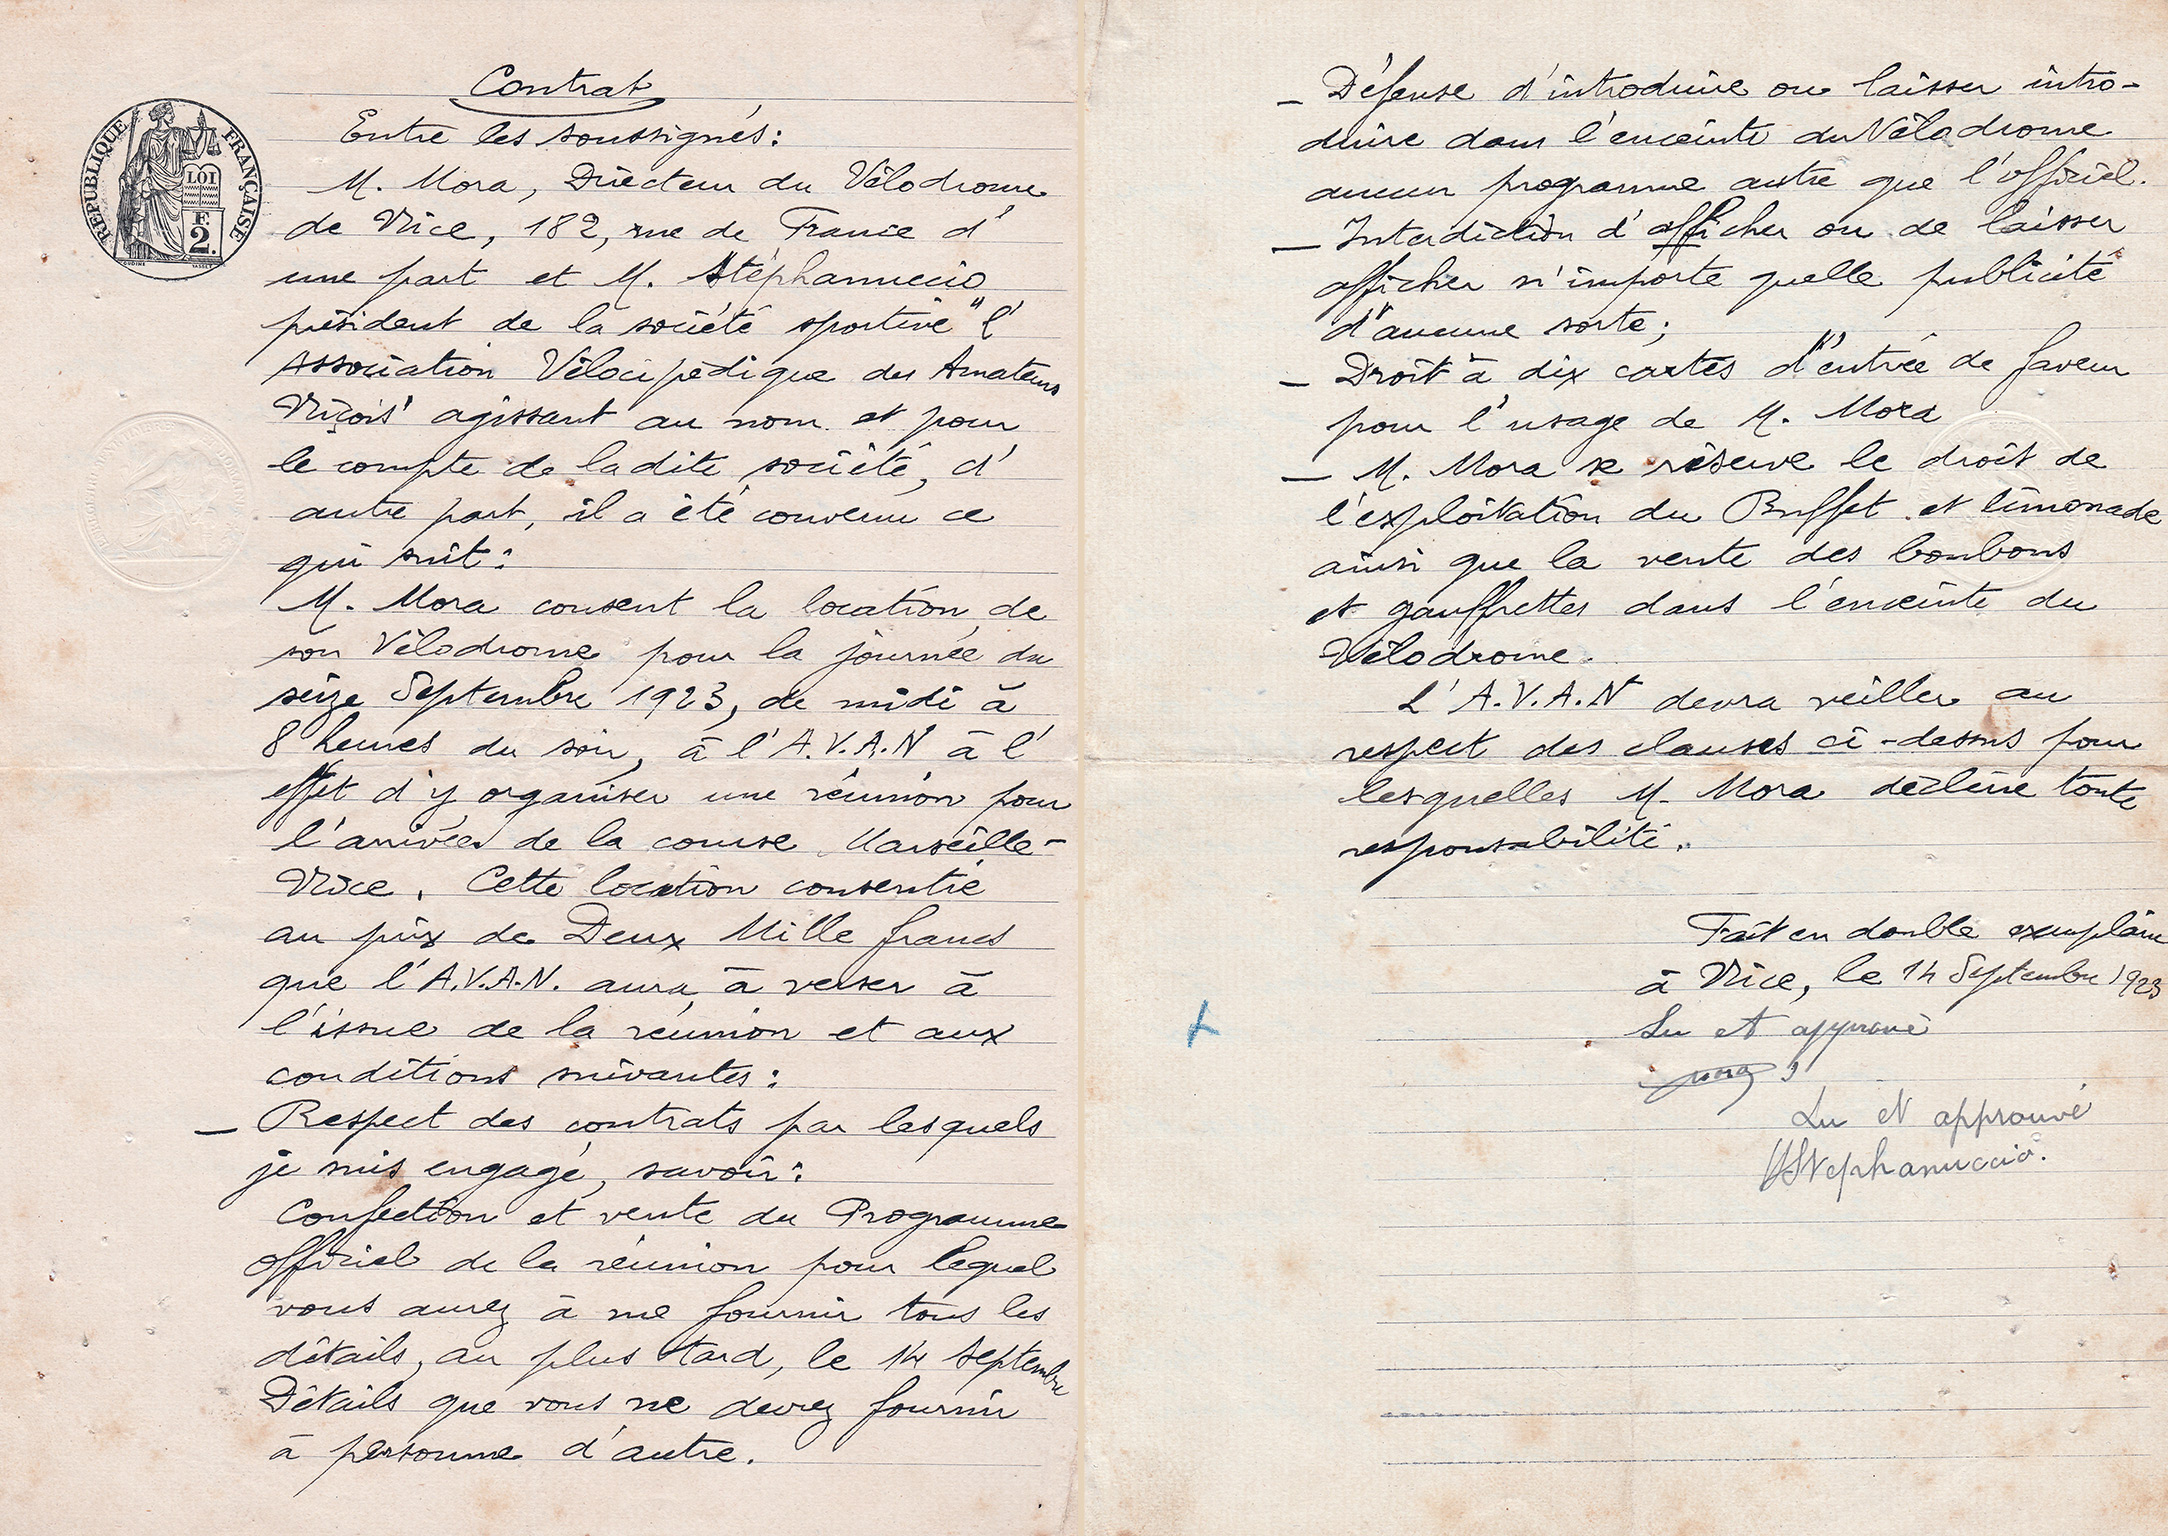 Contrat
Entre les soussignés:
M. Mora, Directeur du Vélodrome
de Nice, 182, rue de France d'
une part et M. Stéphanuccio
président de la société sportive "l'
Association Vélocipédique des Amateurs
Niçois" agissant au nom et pour
le compte de ladite société, d'
autre part, il a été convenu ce
qui suit:
M. Mora consent la location de
son Vélodrome pour la journée du
seize Septembre 1923, de midi à
8 heures du soir, à l'A.V.A.N à l'
effet d'y organiser une réunion pour
l'arrivée de la course Marseille-
Nice. Cette location consentie
au prix de Deux Mille francs
que l'A.V.A.N. aura à verser à
l'issue de la réunion et aux
conditions suivantes:
— Respect des contrats par lesquels
je suis engagé, savoir:
Confection et vente du Programme
officiel de la réunion pour lequel
vous aurez à me fournir tous les
détails, au plus tard, le 14 septembre
Détails que vous ne devrez fournir
à personne d'autre.
— Défense d'introduire ou laisser intro-
duire dans l'enceinte du Vélodrome
aucun programme autre que l'officiel.
— Interdiction d'afficher ou de laisser
afficher n'importe quelle publicité
d'aucune sorte;
— Droit à dix cartes d'entrée de faveur
pour l'usage de M. Mora
— M. Mora se réserve le droit de
l'exploitation du Buffet et limonade
ainsi que la vente des bonbons
et gauffrettes dans l'enceinte du
Vélodrome.
L'A.V.A.N devra veiller au
respect des clauses ci-dessus pour
lesquelles M. Mora décline toute
responsabilité.
Fait en double exemplaire
à Nice, le 14 Septembre 1923
Lu et approuvé
Mora
Lu et approuvé
Stephanuccio.
REPUBLIQUE FRANÇAISE
LOI
F.
2.